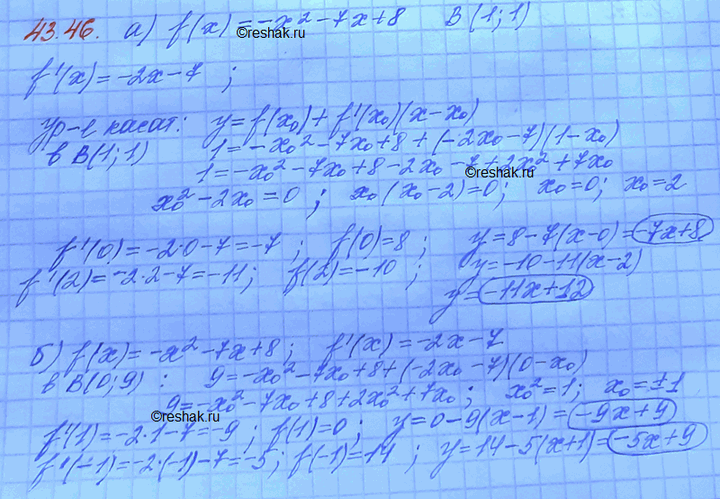 43.46. а) f(x) = -x² - 7x + 8   B(1; 1)
©reshak.ru
f'(x) = -2x - 7 ;
ур-е касат: y = f(x₀) + f'(x₀)(x - x₀)
в B(1; 1)   1 = -x₀² - 7x₀ + 8 + (-2x₀ - 7)(1 - x₀)
1 = -x₀² - 7x₀ + 8 - 2x₀ - 7 + 2x₀² + 7x₀
©reshak.ru
x₀² - 2x₀ = 0 ; x₀(x₀ - 2) = 0; x₀ = 0; x₀ = 2
f'(0) = -2·0 - 7 = -7 ; f(0) = 8 ; y = 8 - 7(x - 0) = -7x + 8
f'(2) = -2·2 - 7 = -11; f(2) = -10 ; y = -10 - 11(x - 2)
y = -11x + 12
б) f(x) = -x² - 7x + 8 ; f'(x) = -2x - 7
в B(0; 9) : 9 = -x₀² - 7x₀ + 8 + (-2x₀ - 7)(0 - x₀)
9 = -x₀² - 7x₀ + 8 + 2x₀² + 7x₀ ; x₀² = 1; x₀ = ±1
©reshak.ru
f'(1) = -2·1 - 7 = -9 ; f(1) = 0 ; y = 0 - 9(x - 1) = -9x + 9
f'(-1) = -2·(-1) - 7 = -5; f(-1) = 14 ; y = 14 - 5(x + 1) = -5x + 9